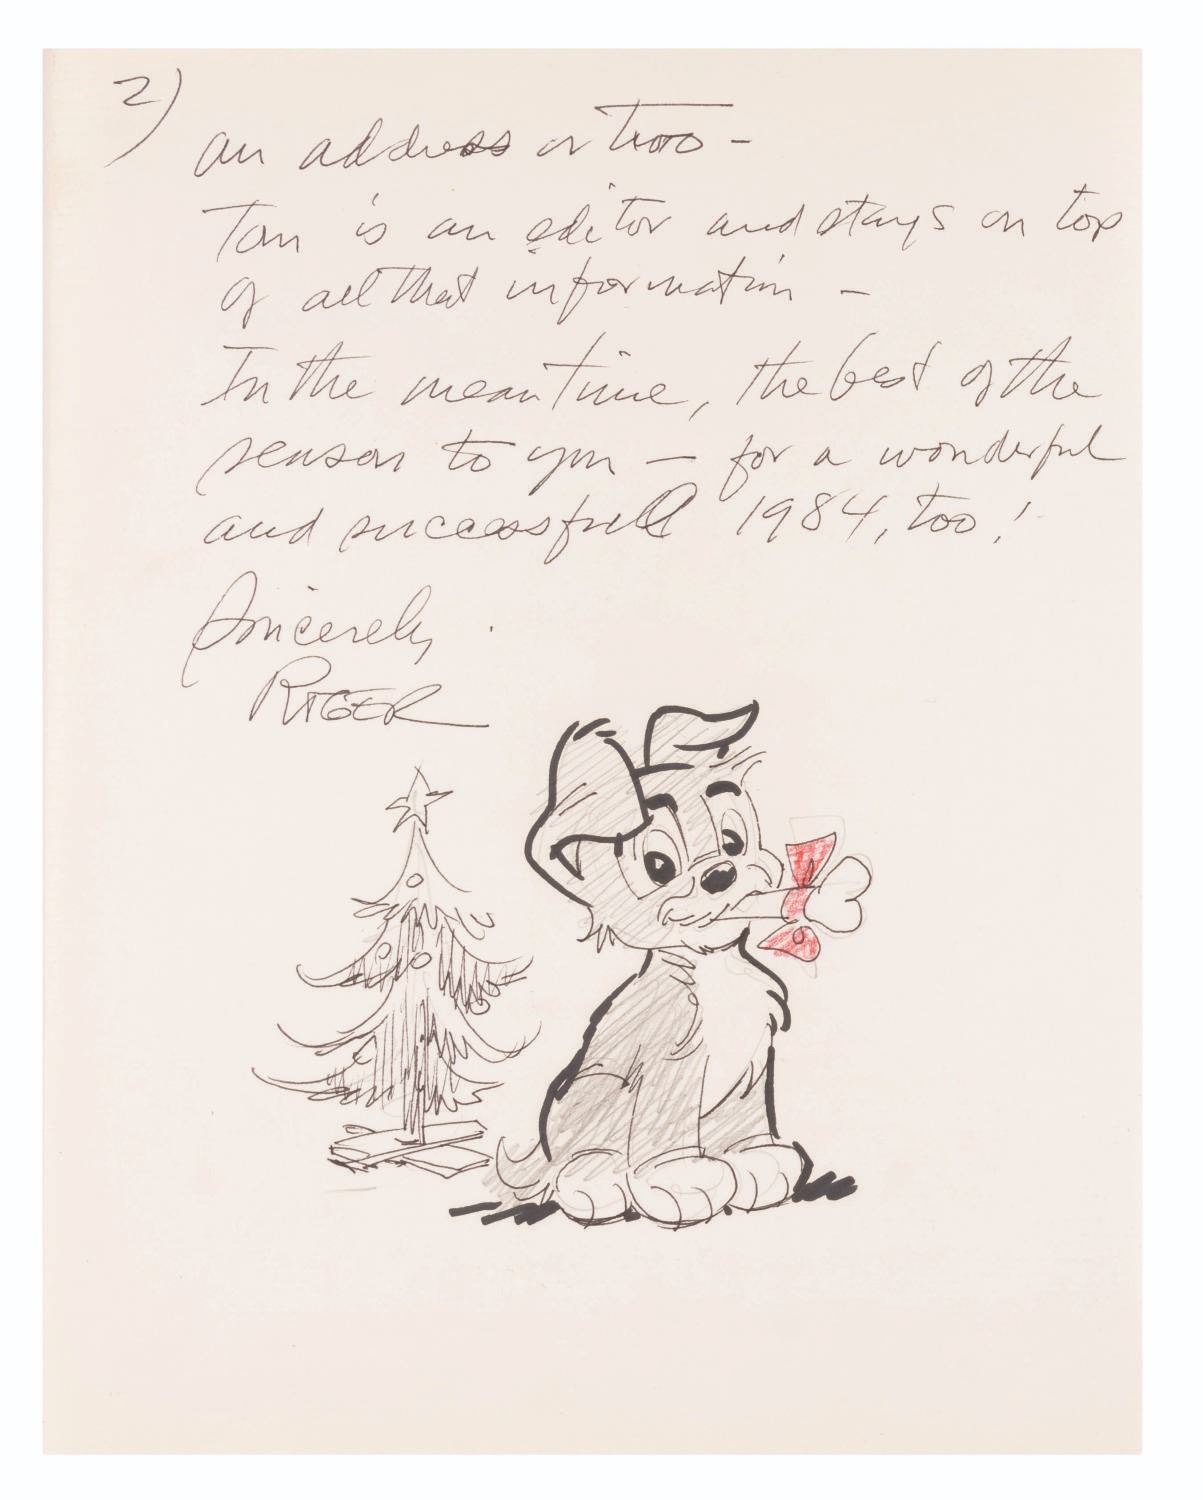 2)
an address or two -
Tom is an editor and stays on top
of all that information -
In the meantime, the best of the
season to you - for a wonderful
and successfull 1984, too!
Sincerely